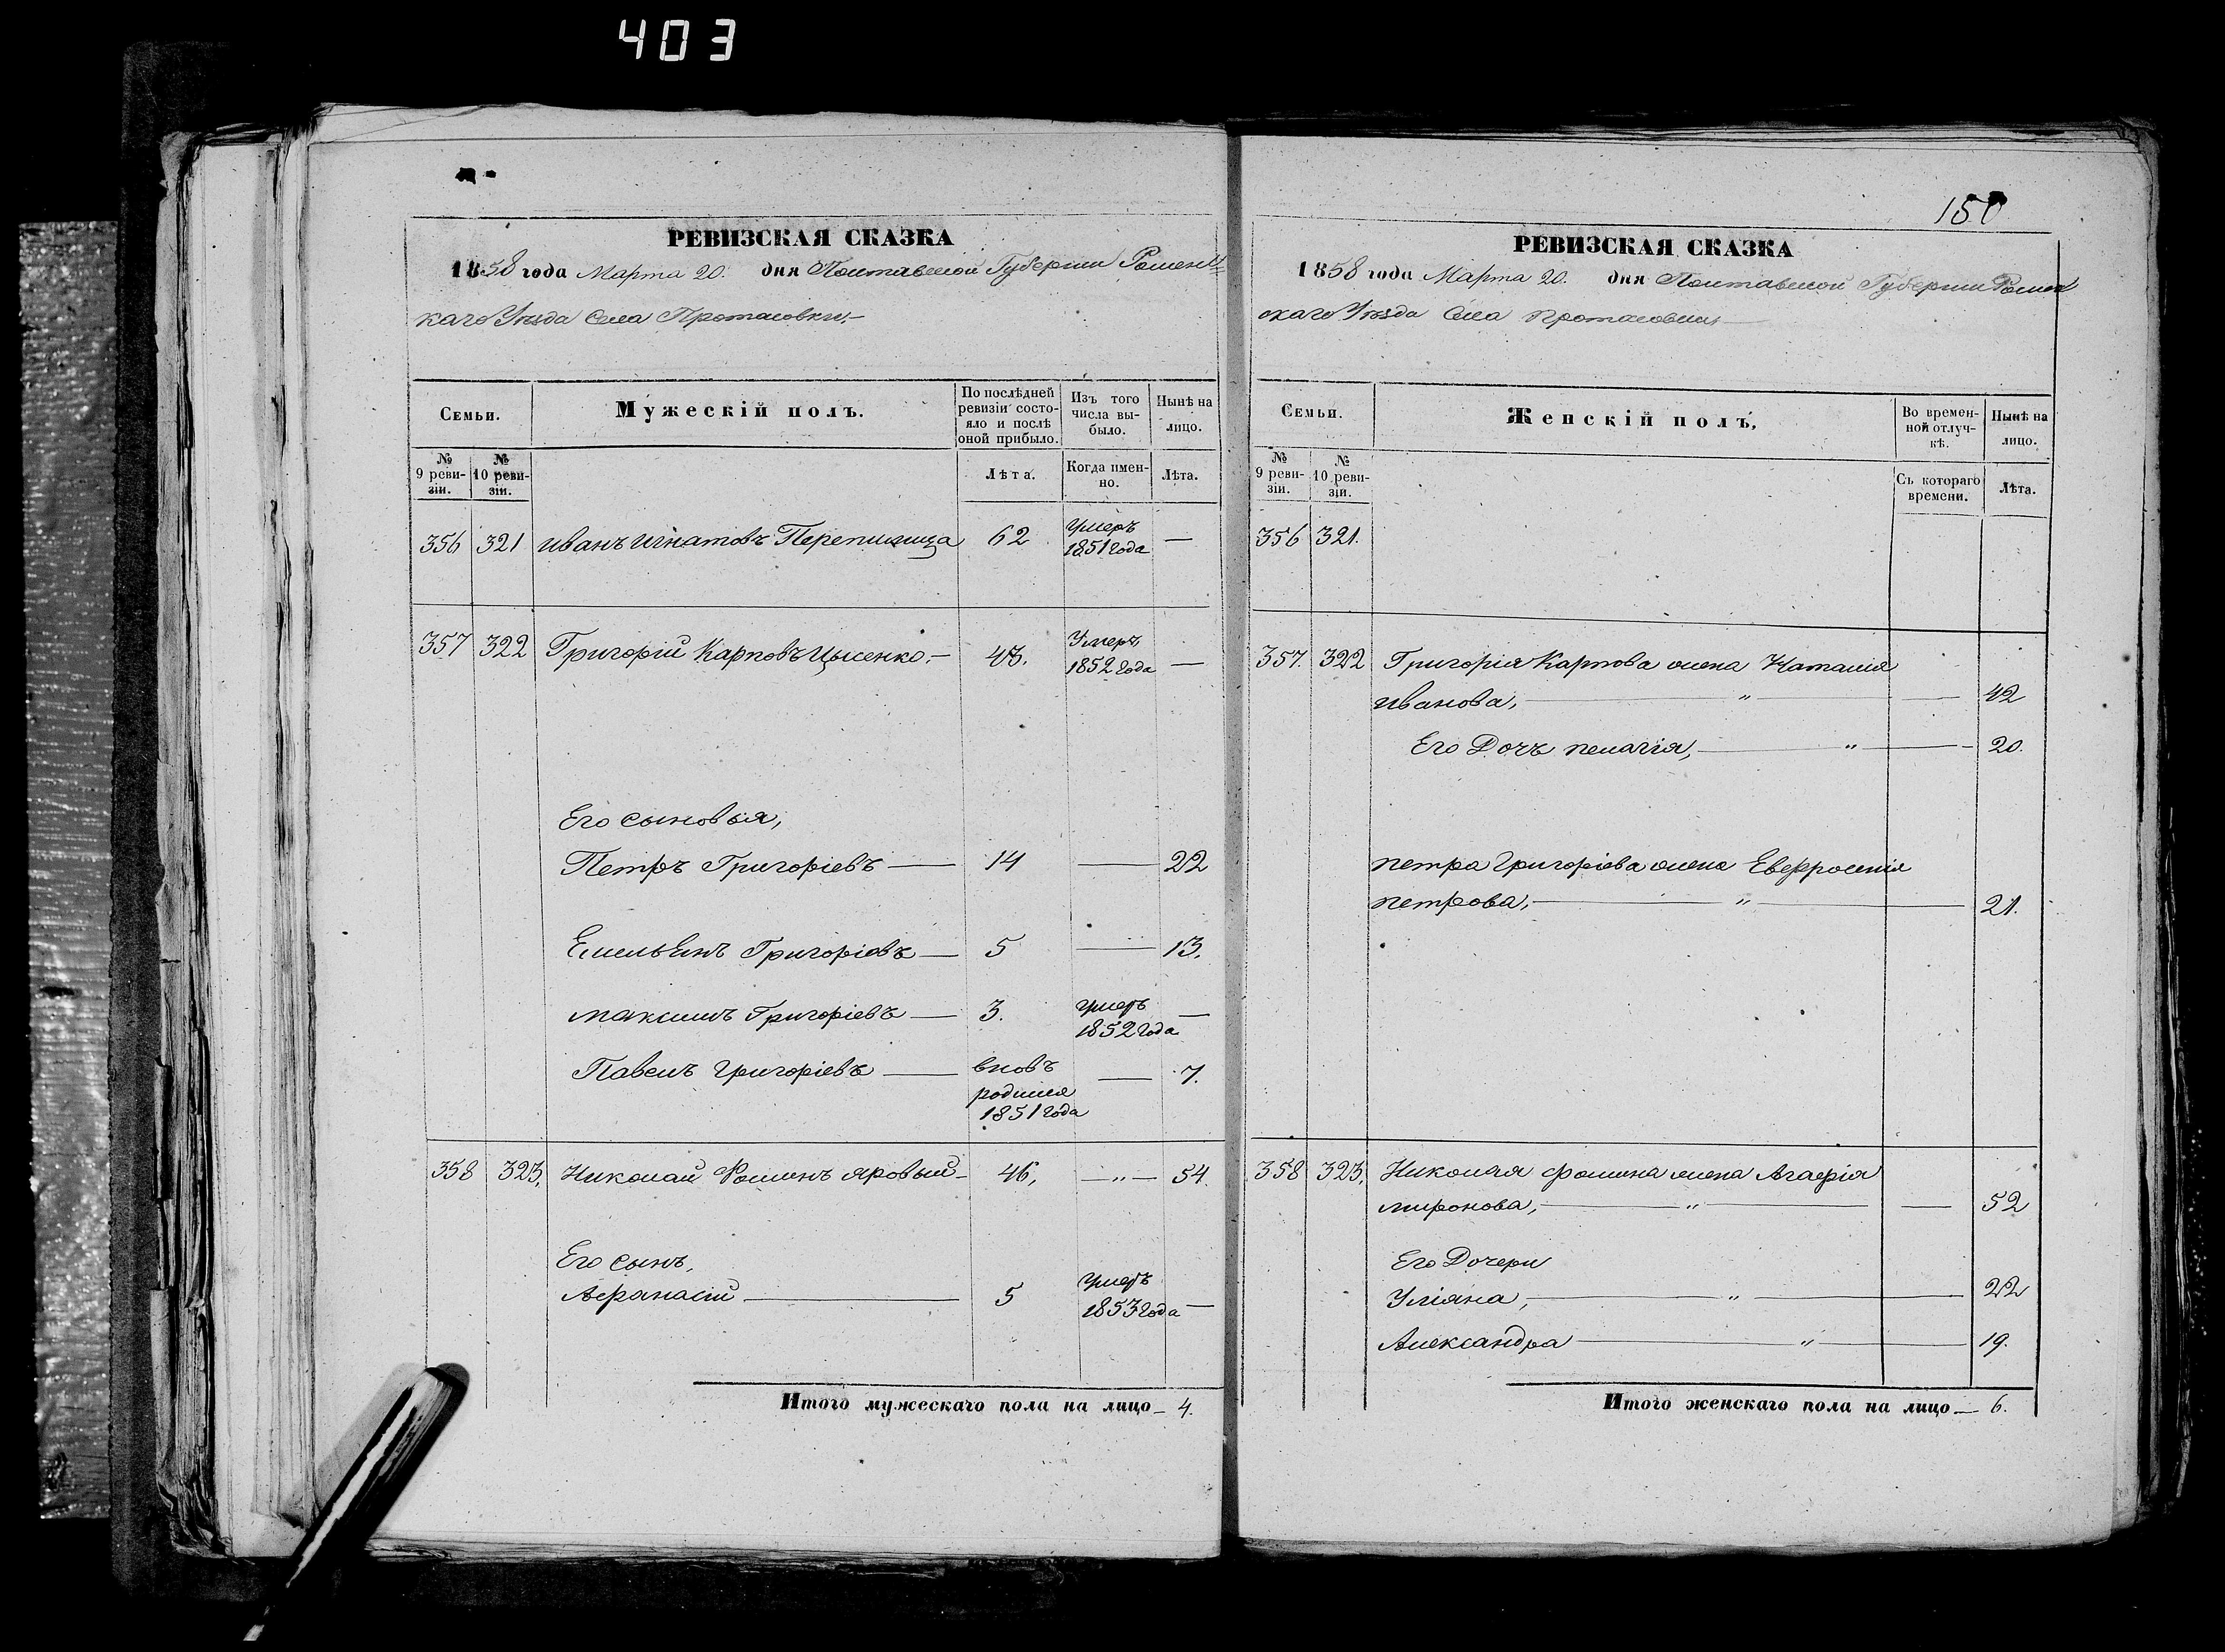 403
РЕВИЗСКАЯ СКАЗКА
1858 года Марта 20. дня Полтавской Губернии Роменс
каго Уѣзда Села Протасовки.
Семьи.
Мужескій полъ.
По послѣдней ревизіи состо-яло и послѣ оной прибыло.
Изъ того числа вы-было.
Нынѣ на лицо.
№ 9 реви-зіи.
№ 10 реви-зіи.
Лѣта.
Когда имен-но.
Лѣта.
356 321 Иванъ Игнатовъ 62 Умеръ 1851 года —
357 322 Григорій Карповъ Цысенко. — 43. Умеръ 1852 года —
Его сыновья,
Петръ Григоріевъ — 14 — 22
Емельянъ Григоріевъ — 5 — 13.
Максимъ Григоріевъ — 3. умеръ 1852 года —
Павелъ Григоріевъ — вновь родился 1851 года — 7.
358 323. Николай Фоминъ Яровый — 46, — " — 54.
Его сынъ,
Афанасій — 5 умеръ 1853 года —
Итого мужескаго пола на лицо — 4.
150
РЕВИЗСКАЯ СКАЗКА
1858 года Марта 20. дня Полтавской Губерніи Ромен
скаго Уѣзда Села Протасовки
Семьи.
Женскій полъ.
Во времен-ной отлуч-кѣ.
Нынѣ на лицо.
№ 9 реви-зіи.
№ 10 реви-зіи.
Съ котораго времени.
Лѣта.
356 321.
357. 322 Григорія Карпова жена Наталія
Иванова, — " — 42
Его Дочь Пелагія, — " — 20.
Петра Григоріева жена Евфросенія
Петрова, — " — 21.
358 323, Николая Фомина жена Агафія
Миронова, — " — 52
Его Дочери
Уліяна, — " — 22
Александра — " — 19.
Итого женскаго пола на лицо — 6.